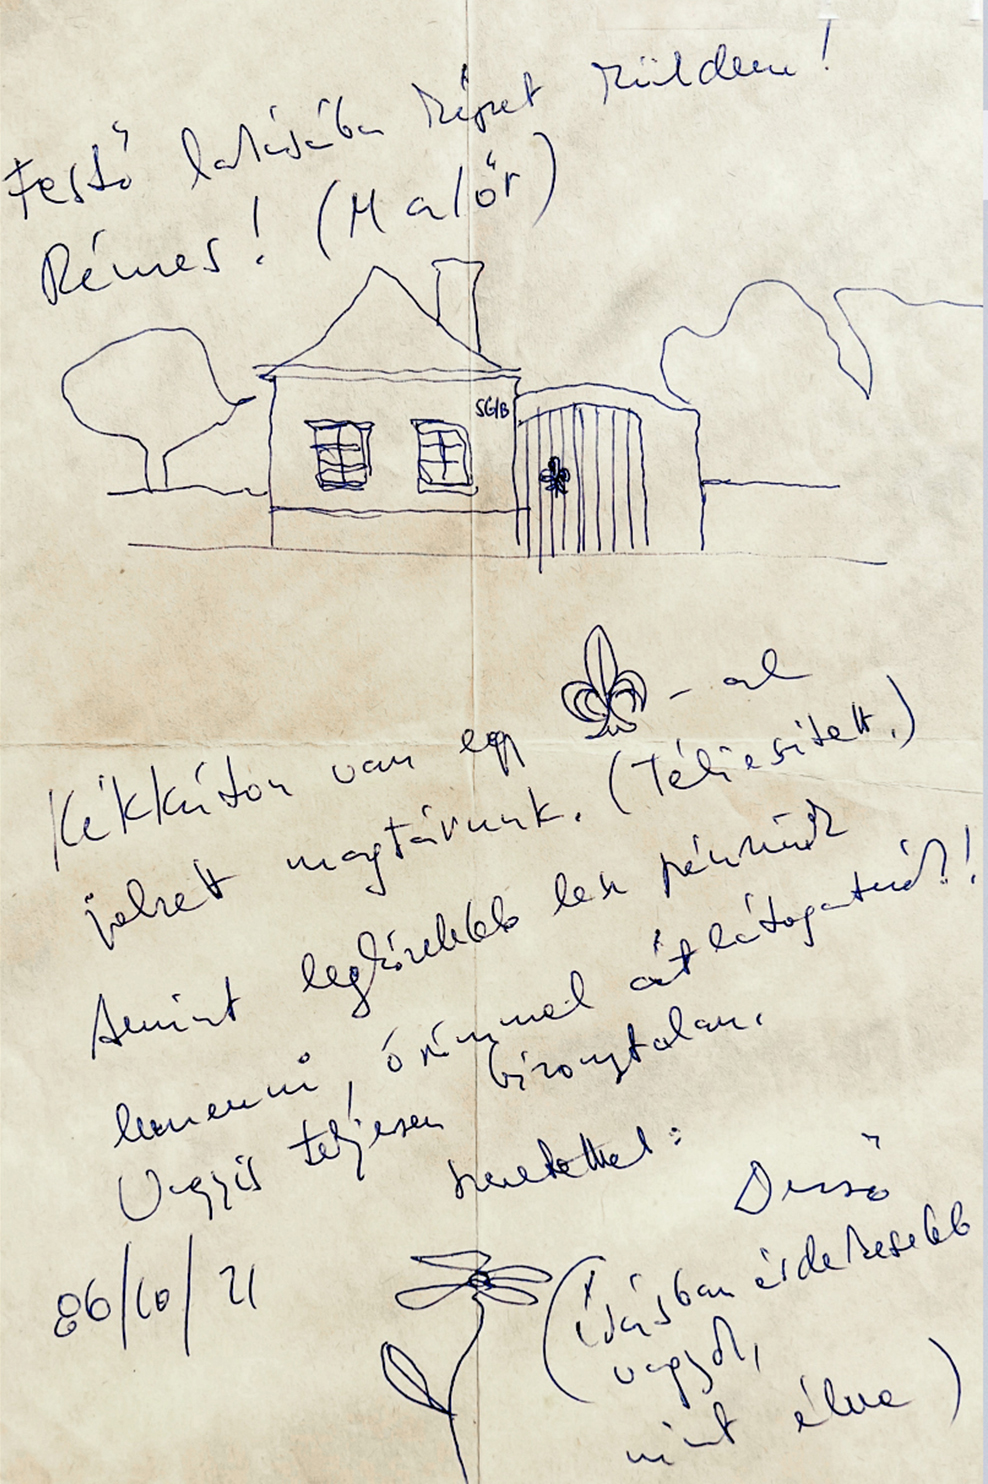 Festő lakásába képet küldeni!
Rémes! (Malőr)
SG/B
Kékkúton van egy -al
jelzett magtárunk. (Téliesített.)
Amint legközelebb lesz pénzünk
lemenni, örömmel átlátogatnánk!!
Vagyis teljesen bizonytalan.
szeretettel:
Dezső
86/10/21
(írásban érdekesebb
vagyok,
mint élve)